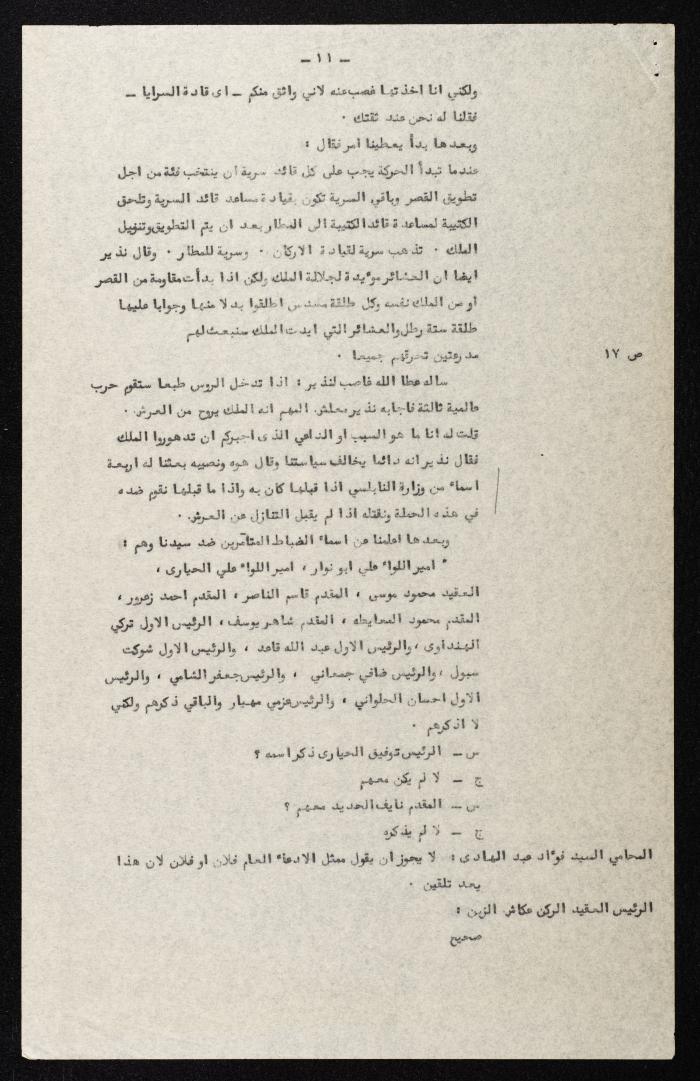 - ١١ -
ولكني انا اخذتها غصب عنه لاني واثق منكم - اى قادة السرايا -
فقلنا له نحن عند ثقتك .
وبعدها بدأ يعطينا امر فقال :
عندما تبدأ الحركة يجب على كل قائد سرية ان ينتخب فئة من اجل
تطويق القصر وباقي السرية تكون بقيادة مساعد قائد السرية وتلحق
الكتيبة لمساعدة قائد الكتيبة الى المطار بعد ان يتم التطويق وتنزيل
الملك . تذهب سرية لقيادة الاركان . وسرية للمطار . وقال نذير
ايضا ان العشائر موءيدة لجلالة الملك ولكن اذا بدأت مقاومة من القصر
او من الملك نفسه وكل طلقة مسدس اطلقوا بدلا منها وجوابا عليها
طلقة ستة رطل والعشائر التي ايدت الملك سنبعث لهم
مدرعتين تحرقهم جميعا .
ص ١٧
ساله عطا الله غاصب لنذير : اذا تدخل الروس طبعا ستقوم حرب
عالمية ثالثة فاجابه نذير معلش المهم انه الملك يروح من العرش .
قلت له انا ما هو السبب او الداعي الذى اجبركم ان تدهوروا الملك
فقال نذير انه دائما يخالف سياستنا وقال هوه ونصيبه بعثنا له اربعة
اسماء من وزارة النابلسي اذا قبلها كان به واذا ما قبلها نقوم ضده
في هذه الحملة ونقتله اذا لم يقبل التنازل عن العرش .
وبعدها اعلمنا عن اسماء الضباط المتآمرين ضد سيدنا وهم :
" امير اللواء علي ابو نوار ، امير اللواء علي الحيارى ،
العقيد محمود موسى ، المقدم قاسم الناصر ، المقدم احمد زعرور ،
المقدم محمود المعايطه ، المقدم شاهر يوسف ، الرئيس الاول تركي
الهنداوى ، والرئيس الاول عبد الله قاعد ، والرئيس الاول شوكت
سبول ، والرئيس ضافي جمعاني ، والرئيس جعفر الشامي ، والرئيس
الاول احسان الحلواني ، والرئيس عزمي مهيار والباقي ذكرهم ولكني
لا اذكرهم .
س - الرئيس توفيق الحيارى ذكر اسمه ؟
ج - لا لم يكن معهم
س - المقدم نايف الحديد معهم ؟
ج - لا لم يذكره
المحامي السيد فوءاد عبد الهادى : لا يجوز ان يقول ممثل الادعاء العام فلان او فلان لان هذا
يعد تلقين .
الرئيس العقيد الركن عكاش الزبن :
صحيح